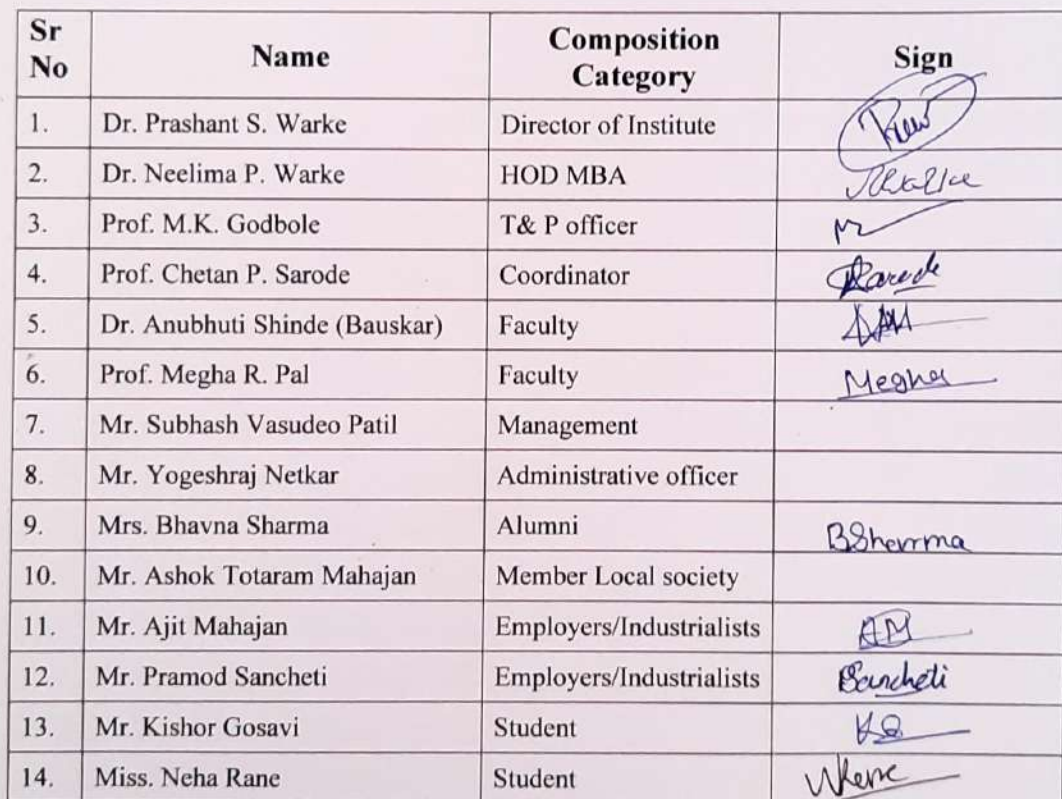 Sr No Name Composition Category Sign
1. Dr. Prashant S. Warke Director of Institute
2. Dr. Neelima P. Warke HOD MBA
3. Prof. M.K. Godbole T& P officer
4. Prof. Chetan P. Sarode Coordinator Sarode
5. Dr. Anubhuti Shinde (Bauskar) Faculty
6. Prof. Megha R. Pal Faculty Megha
7. Mr. Subhash Vasudeo Patil Management
8. Mr. Yogeshraj Netkar Administrative officer
9. Mrs. Bhavna Sharma Alumni BSharma
10. Mr. Ashok Totaram Mahajan Member Local society
11. Mr. Ajit Mahajan Employers/Industrialists AM
12. Mr. Pramod Sancheti Employers/Industrialists Sancheti
13. Mr. Kishor Gosavi Student
14. Miss. Neha Rane Student